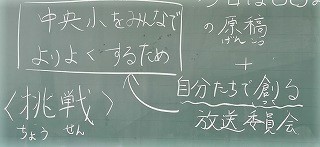 中央小をみんなで
よりよくするため
〈挑戦〉
ちょう せん
の原稿
げんこう
+
自分たちで創る
つく
放送委員会